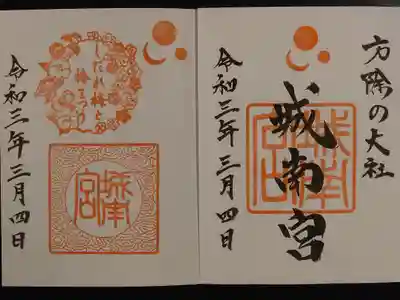 方除の大社
城南宮
令和三年三月四日
しだれ梅と
椿まつり
城南宮
令和三年三月四日